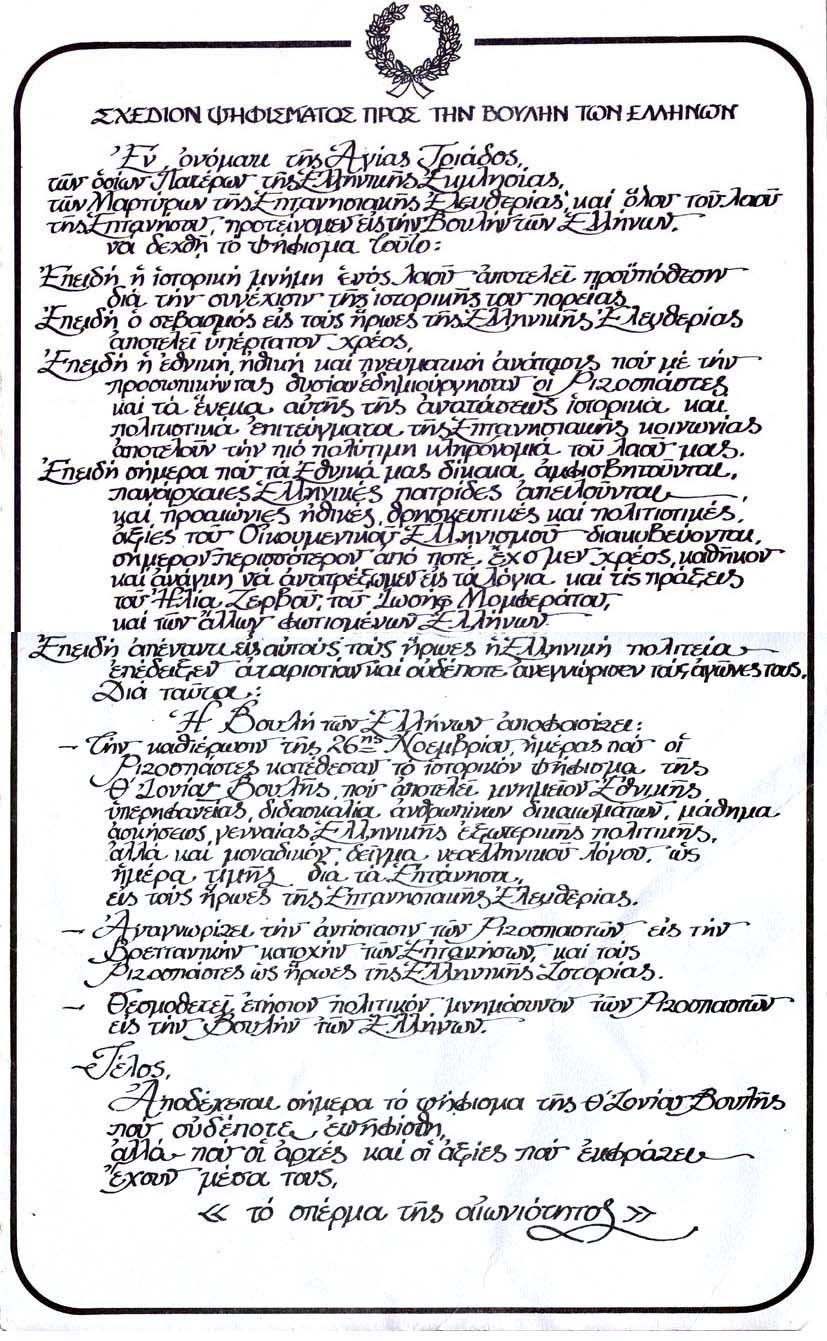 ΣΧΕΔΙΟΝ ΨΗΦΙΣΜΑΤΟΣ ΠΡΟΣ ΤΗΝ ΒΟΥΛΗΝ ΤΩΝ ΕΛΛΗΝΩΝ
Ἐν ὀνόματι τῆς Ἁγίας Τριάδος,
τῶν ὁσίων Πατέρων τῆς Ἑλληνικῆς Ἐκκλησίας,
τῶν Μαρτύρων τῆς Ἑπτανησιακῆς Ἐλευθερίας, καί ὅλου τοῦ λαοῦ
τῆς Ἑπτανήσου, προτείνομεν εἰς τήν Βουλήν τῶν Ἑλλήνων,
νά δεχθῇ τό ψήφισμα τοῦτο:
Ἐπειδή ἡ ἱστορική μνήμη ἑνός λαοῦ ἀποτελεῖ προϋπόθεσιν
διά τήν συνέχισιν τῆς ἱστορικῆς του πορείας
Ἐπειδή ὁ σεβασμός εἰς τούς ἥρωες τῆς Ἑλληνικῆς Ἐλευθερίας
ἀποτελεῖ ὑπέρτατον χρέος,
Ἐπειδή ἡ ἐθνική, ἠθική καί πνευματική ἀνάτασις πού μέ τήν
προσωπικήν τας θυσίαν ἐδημιούργησαν οἱ Ριζοσπάστες
καί τά ἕνεκα αὐτῆς τῆς ἀνατάσεως ἱστορικά καί
πολιτιστικά ἐπιτεύγματα τῆς Ἑπτανησιακῆς κοινωνίας
ἀποτελοῦν τήν πιό πολύτιμη κληρονομιά τοῦ λαοῦ μας.
Ἐπειδή σήμερα πού τά ἐθνικά μας δίκαια ἀμφισβητοῦνται,
πανάρχαιες Ἑλληνικές πατρίδες ἀπειλοῦνται,
καί προαιώνιες ἠθικές, θρησκευτικές καί πολιτιστικές,
ἀξίες τοῦ Οἰκουμενικοῦ Ἑλληνισμοῦ διακυβεύονται,
σήμερον περισσότερον ἀπό ποτέ, ἔχομεν χρέος, καθῆκον
καί ἀνάγκη νά ἀνατρέξωμεν εἰς τά λόγια καί τίς πράξεις
τοῦ Ἠλία Ζερβοῦ, τοῦ Ἰωσήφ Μομφεράτου,
καί τῶν ἄλλων φωτισμένων Ἑλλήνων.
Ἐπειδή ἀπέναντι εἰς αὐτούς τούς ἥρωες ἡ Ἑλληνική πολιτεία
ἐπέδειξεν ἀχαριστίαν καί οὐδέποτε ἀνεγνώρισεν τούς ἀγῶνες τους,
Διά ταῦτα:
Ἡ Βουλή τῶν Ἑλλήνων ἀποφασίζει:
– Τήν καθιέρωσιν τῆς 26ης Νοεμβρίου, ἡμέρας πού οἱ
Ριζοσπάστες κατέθεσαν τό ἱστορικόν ψήφισμα τῆς
Θ' Ἰονίας Βουλῆς, πού ἀποτελεῖ μνημεῖον Ἐθνικῆς
ὑπερηφανείας, διδασκαλία ἀνθρωπίνων δικαιωμάτων, μάθημα
ἀσκήσεως γενναίας Ἑλληνικῆς ἐξωτερικῆς πολιτικῆς,
ἀλλά καί μοναδικόν δεῖγμα νεοελληνικοῦ λόγου, ὡς
ἡμέρα τιμῆς διά τά Ἑπτάνησα,
εἰς τούς ἥρωες τῆς Ἑπτανησιακῆς Ἐλευθερίας.
– Ἀναγνωρίζει τήν ἀντίστασιν τῶν Ριζοσπαστῶν εἰς τήν
Βρεττανικήν κατοχήν τῶν Ἑπτανήσων, καί τούς
Ριζοσπάστες ὡς ἥρωες τῆς Ἑλληνικῆς Ἱστορίας.
– Θεσμοθετεῖ, ἐτήσιον πολιτικόν μνημόσυνον τῶν Ριζοσπαστῶν
εἰς τήν Βουλήν τῶν Ἑλλήνων.
– Τέλος,
Ἀποδέχεται σήμερα τό ψήφισμα τῆς Θ' Ἰονίας Βουλῆς
πού οὐδέποτε ἐψηφίσθη,
ἀλλά πού οἱ ἀρχές καί οἱ ἀξίες πού ἐκφράζει
ἔχουν μέσα τους,
« τό σπέρμα τῆς αἰωνιότητος »